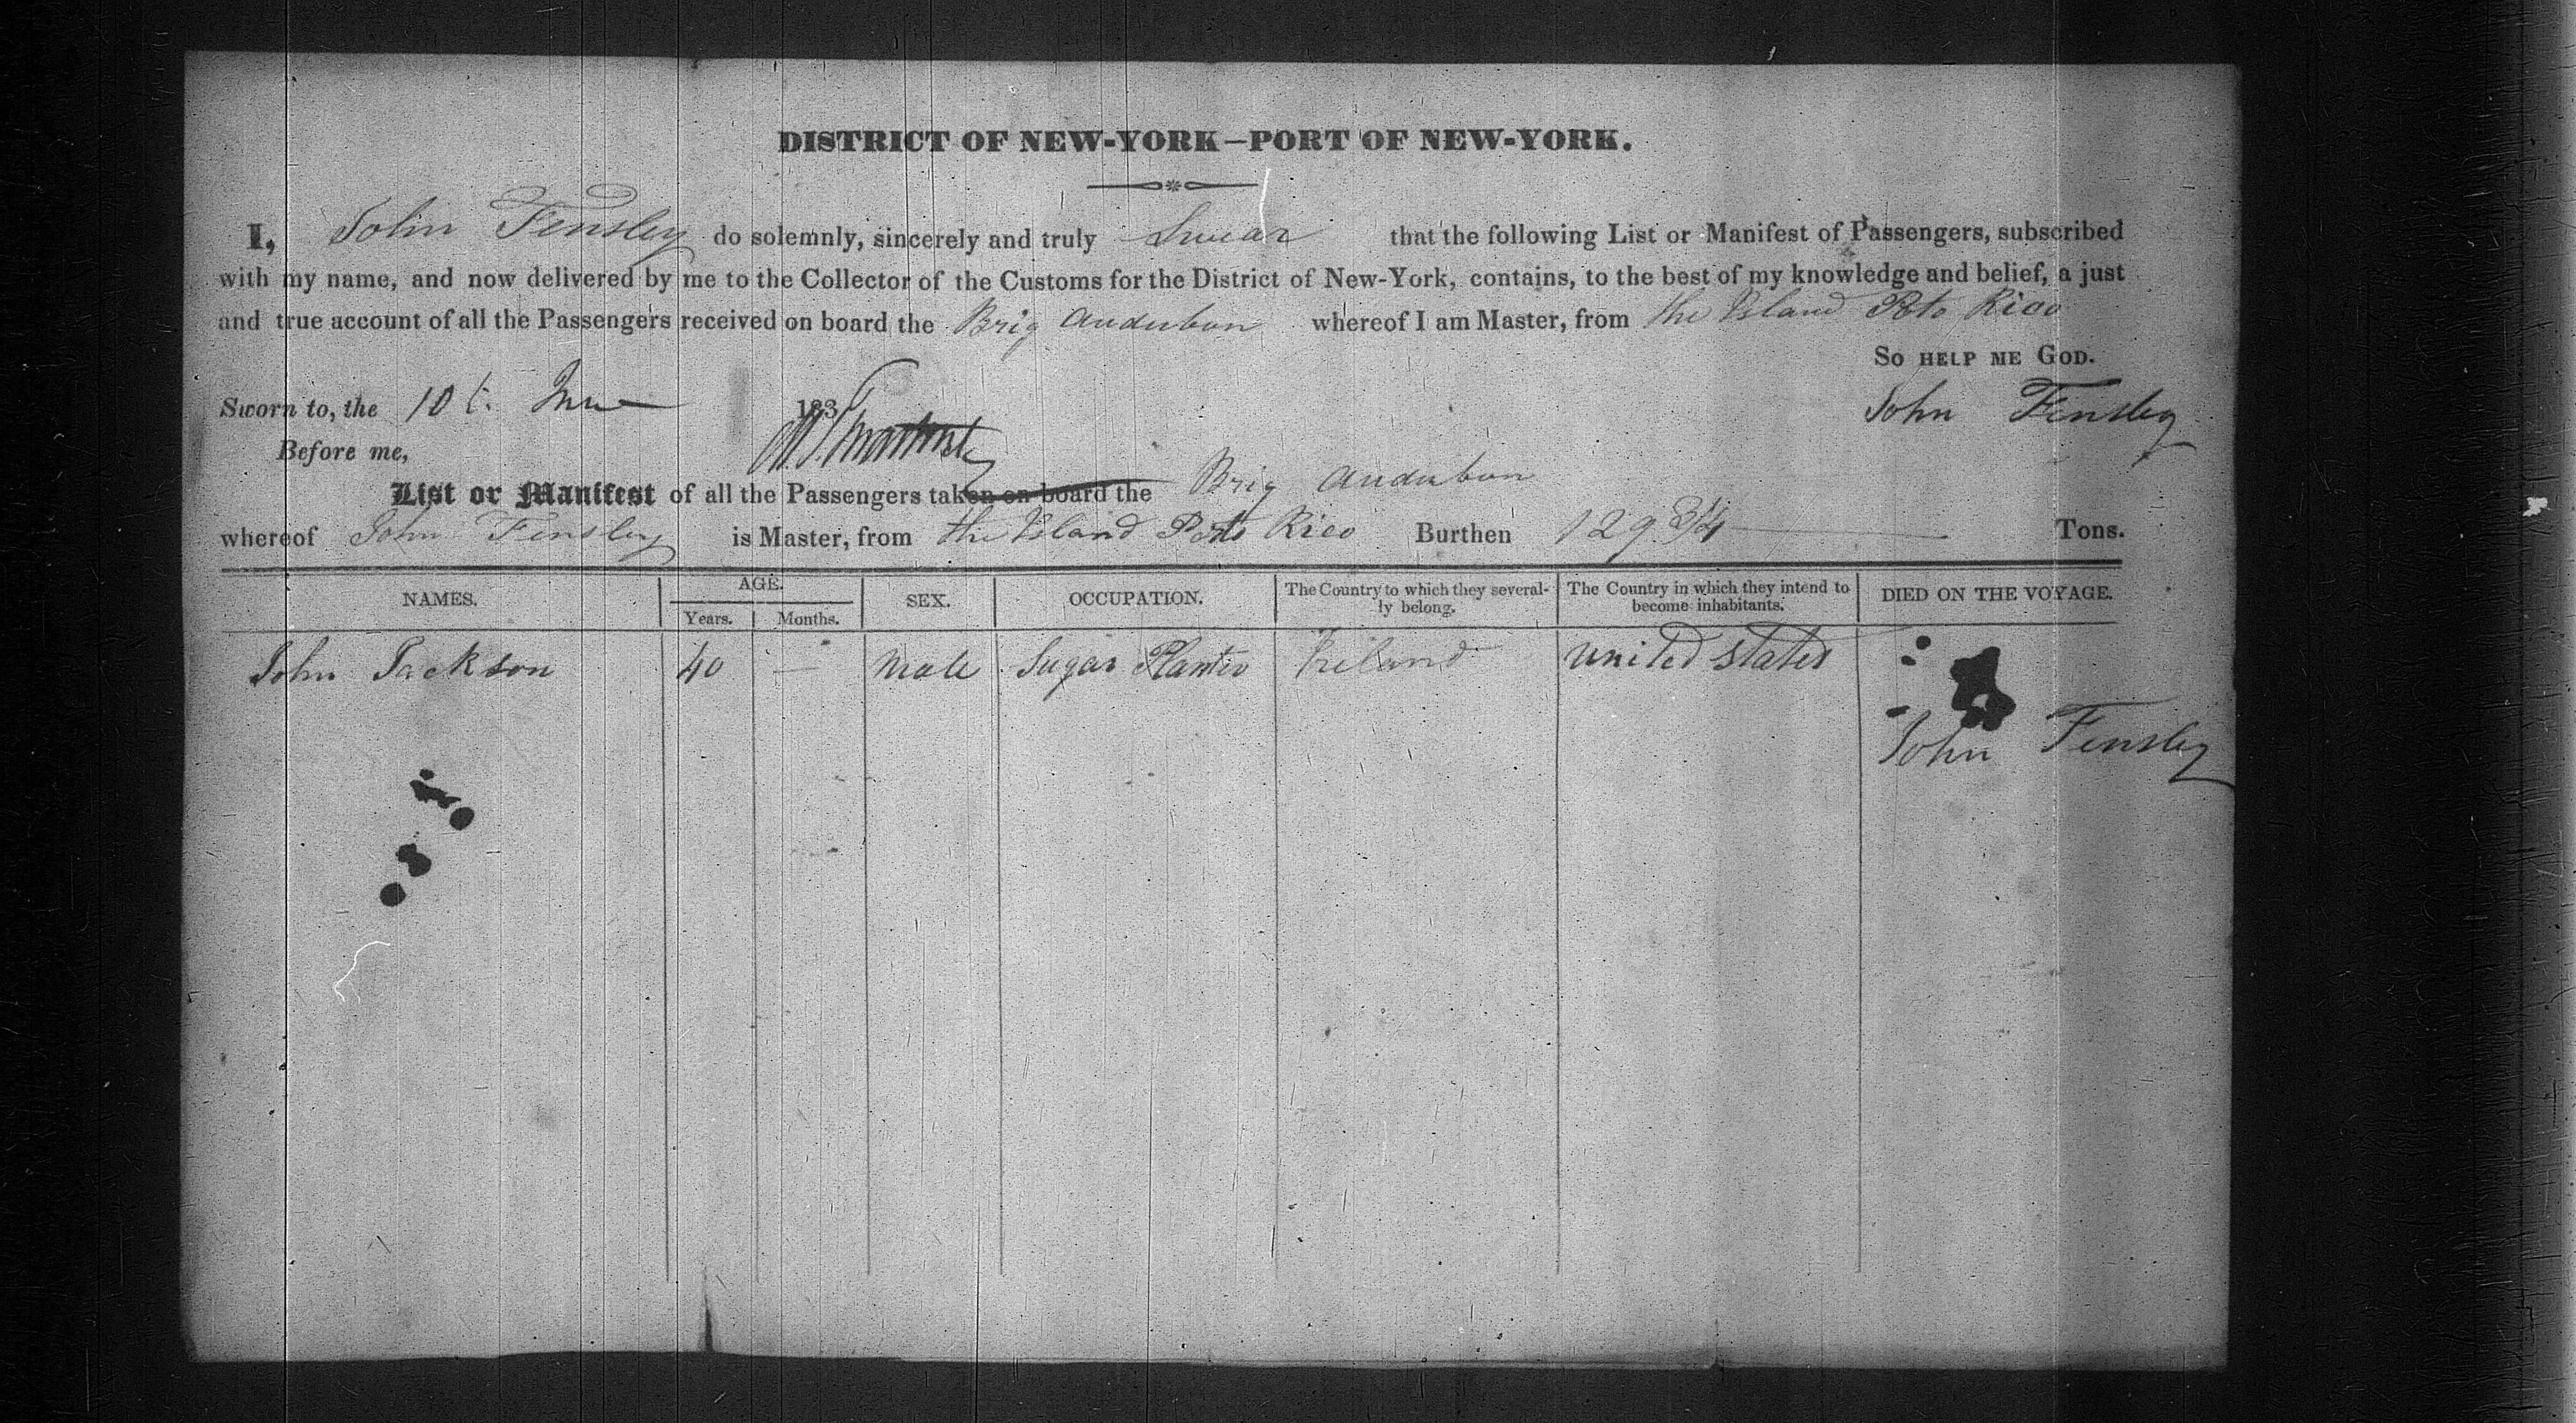 DISTRICT OF NEW-YORK—PORT OF NEW-YORK.
I, John Tensley do solemnly, sincerely and truly Swear that the following List or Manifest of Passengers, subscribed
with my name, and now delivered by me to the Collector of the Customs for the District of New-York, contains, to the best of my knowledge and belief, a just
and true account of all the Passengers received on board the Brig Audubon whereof I am Master, from the Island Poto Rico
SO HELP ME GOD.
Sworn to, the 10 183 John Tensley
Before me,
List or Manifest of all the Passengers taken on board the Brig Audubon
whereof John Tensley is Master, from the Island Porto Rico Burthen 129 3/4 Tons.
NAMES. AGE. Years. Months. SEX. OCCUPATION. The Country to which they severally belong. The Country in which they intend to become inhabitants. DIED ON THE VOYAGE.
John Jackson 40 — Male Sugar Planter Ireland United States
John Tensley